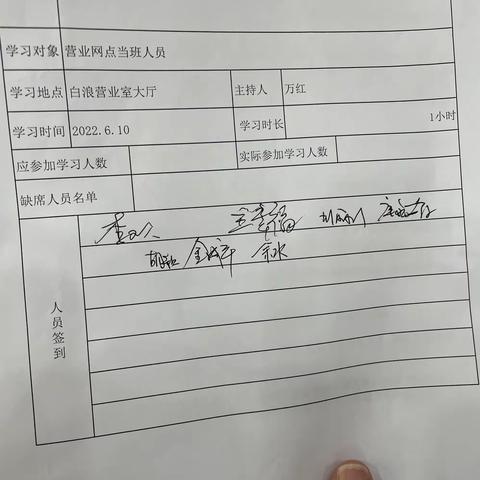 学习对象 营业网点当班人员
学习地点 白浪营业室大厅 主持人 万红
学习时间 2022.6.10 学习时长 1小时
应参加学习人数 实际参加学习人数
缺席人员名单
人员签到